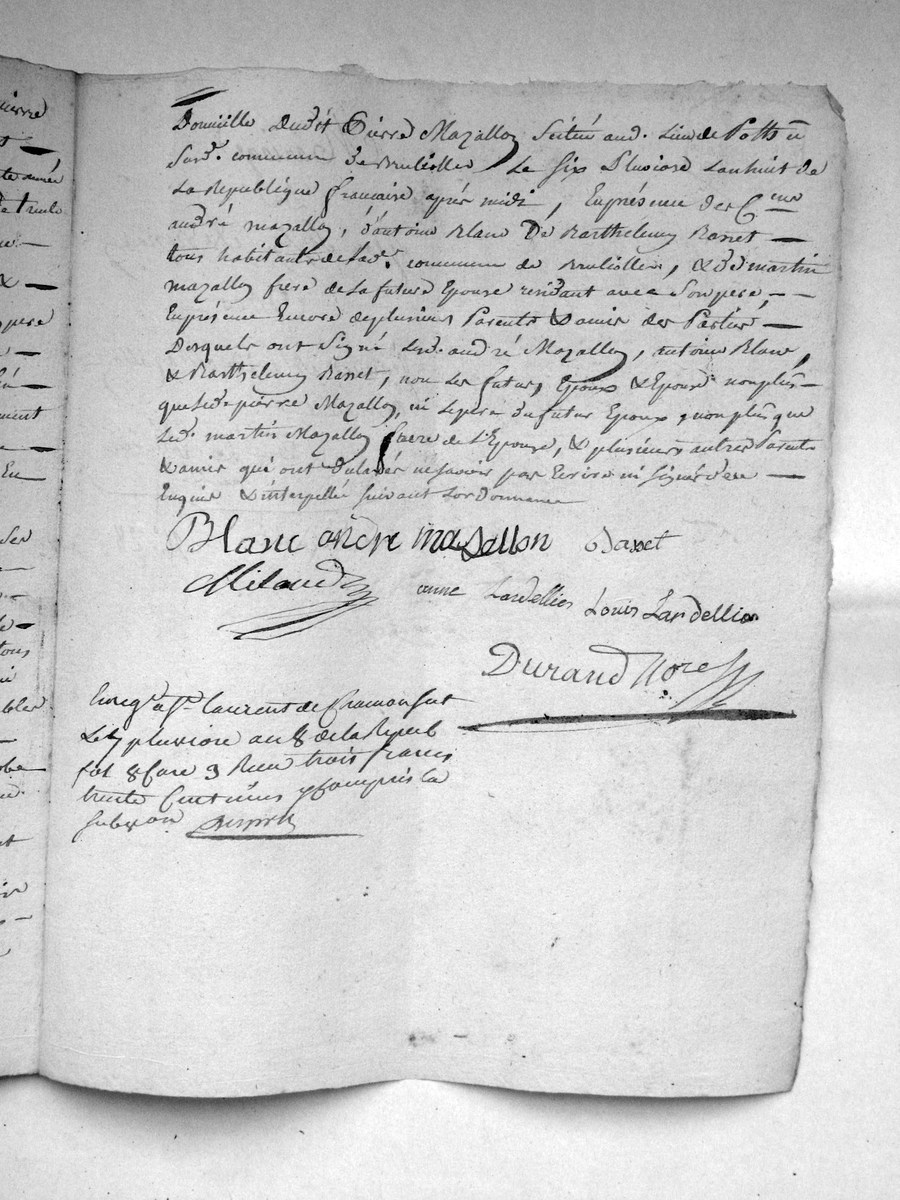 Domicille dudit Pierre Mazallon scitué aud. lieu de
Susd. commune de Brulliolles le six pluviose l'an huit de
la République française après midi, En présence des C.
andré mazallon, d'antoine Blanc De Barthélemy Basset —
tous habitants de lad. commune de Brulliolles, & de martin
mazallon frere de la future Epouse residant avec son pere, —
En présence Encore de plusieurs Parents & amis des Parties —
Desquels ont signé les. andré Mazallon, antoine Blanc,
& Barthélemy Basset, non les futurs Epoux & Epouse non plus —
que led. pierre Mazallon, ni le pere du futur Epoux, non plus que
led. martin Mazallon frere de l'Epouse, & plusieurs autres Parents
& amis qui ont déclaré ne savoir par Ecrire ni signer de ce —
Enquis & interpellés suivant l'ordonnance
Blanc andre masallon Basset
Milaud
anne Lardellier Louis Lardellier
Durand Nore
Enreg. a St. laurent de Chamousset
Le 7 pluviose an 8 de la Repub
fol 8 Case 9 Recu trois francs
trente Centimes y compris la
subvon
uierre
te année
pere
ment
En
tous